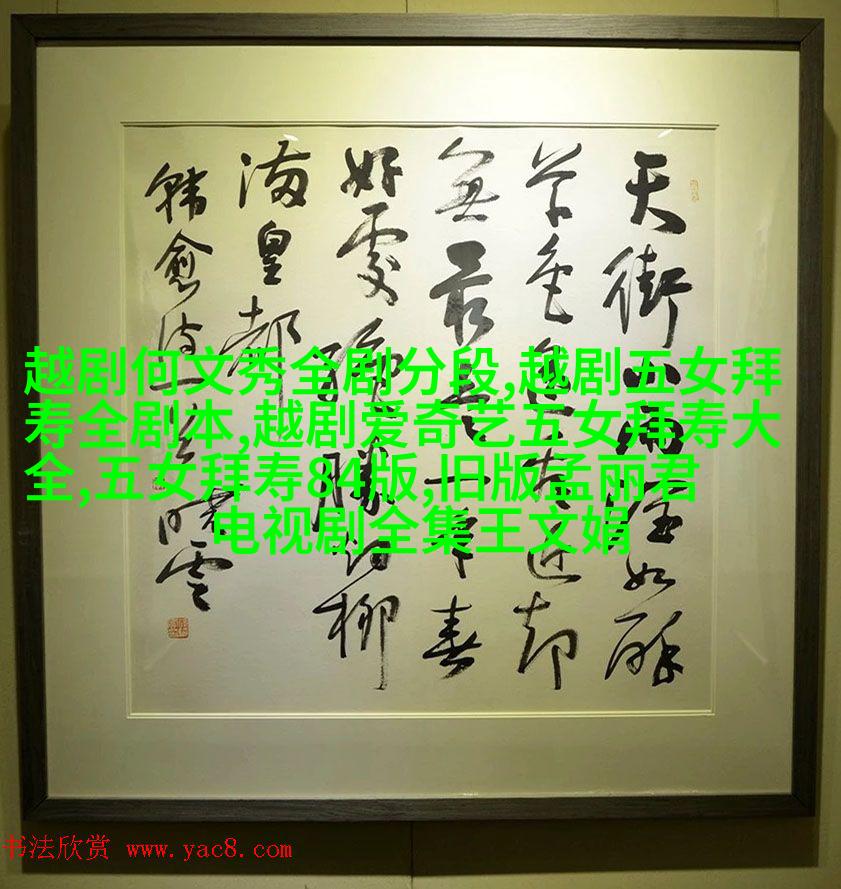 天街小雨润如酥
草色遥看近却
無最是一年春
好處绝勝烟柳
满皇都
韩愈诗一首
越剧何文秀全剧分段,越剧五女拜
寿全剧本,越剧爱奇艺五女拜寿大
全,五女拜寿84版,旧版孟丽君
电视剧全集王文娟
书法欣赏 www.yac8.com